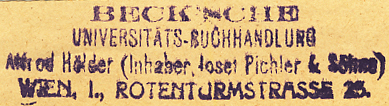 BECK'SCHE
UNIVERSITÄTS-BUCHHANDLUNG
Alfred Hölder (Inhaber Josef Pichler & Söhne)
WIEN, I., ROTENTURMSTRASSE 25.